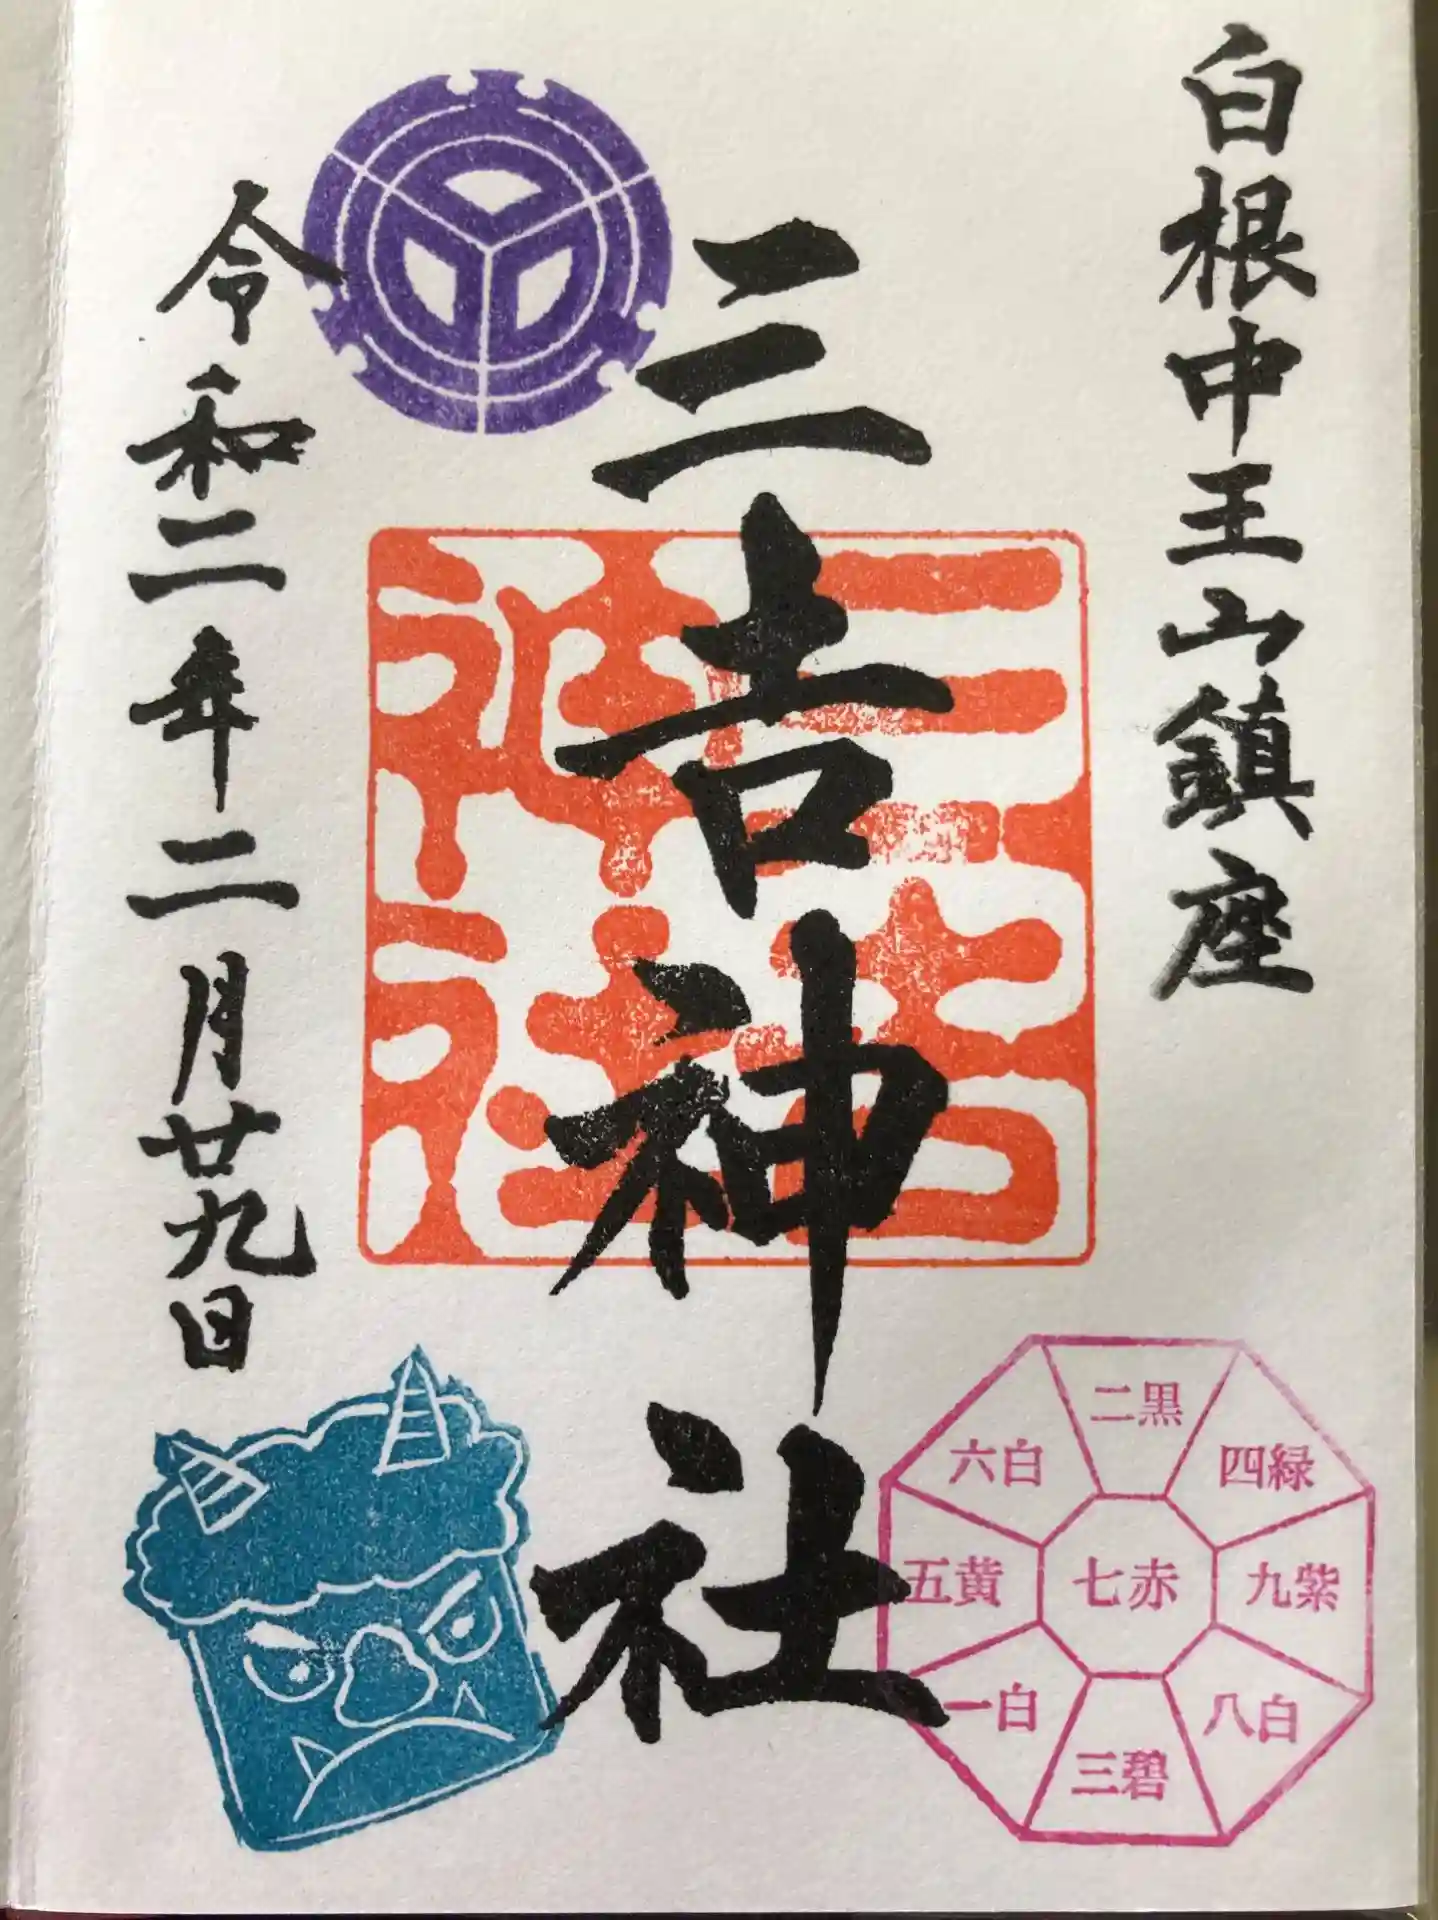 白根中王山鎮座
三吉神社
三吉神社
令和二年二月廿九日
二黒
六白
四緑
五黄
七赤
九紫
一白
八白
三碧